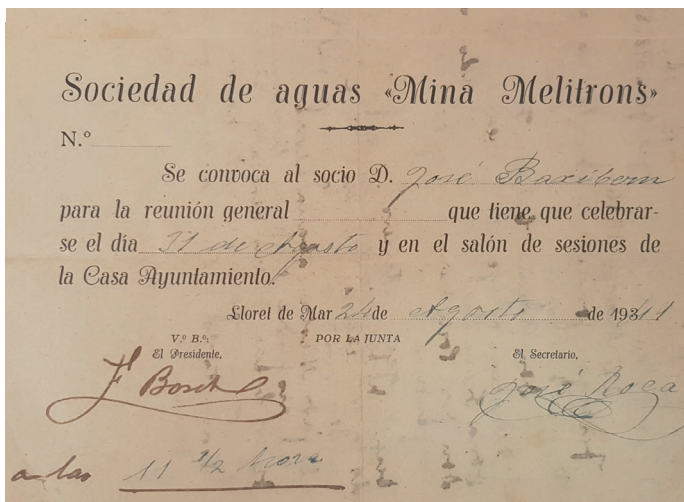 Sociedad de aguas «Mina Melitrons»
N.º
Se convoca al socio D. José Baxibern
para la reunión general que tiene que celebrar-
se el día 31 de Agosto y en el salón de sesiones de
la Casa Ayuntamiento.
Lloret de Mar 24 de Agosto de 1941
V.º B.º: POR LA JUNTA
El Presidente, El Secretario,
F. Bosch José Roca
a las 11 1/2 hora